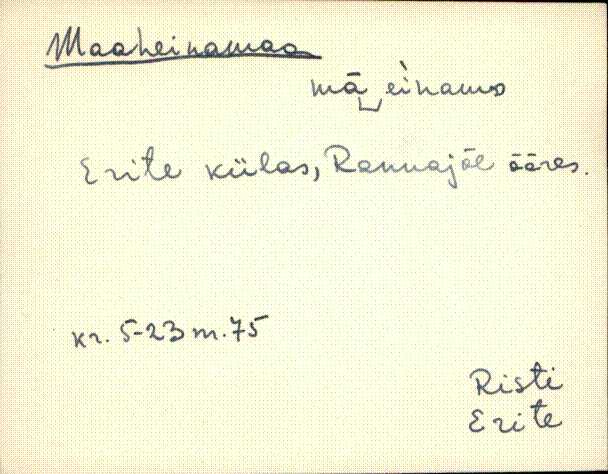 Maaheinamaa
mā‿èinamo
Erite külas, Rannajõe ääres.
kr. 5-23 m. 75
Risti
Erite